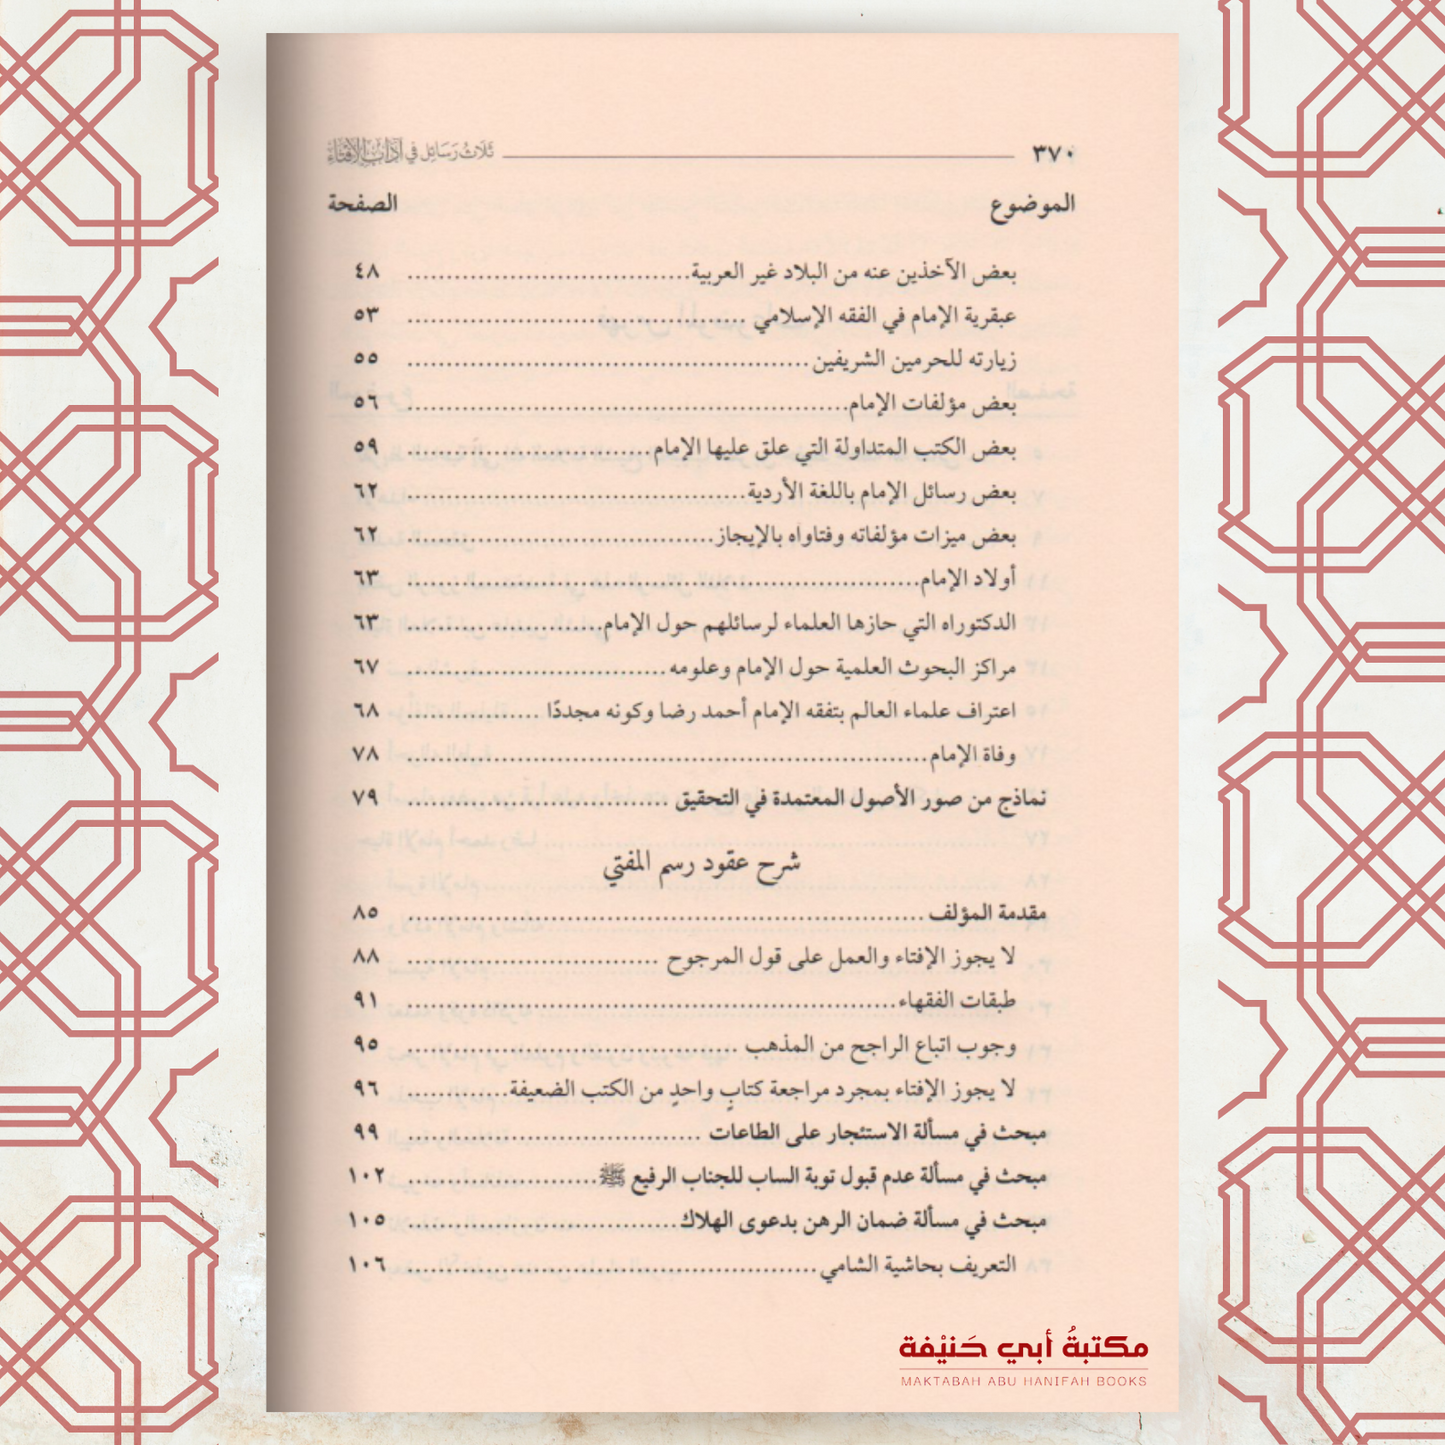 ٣٧٠ ثلاث رسائل في آداب الإفتاء
الموضوع الصفحة
بعض الآخذين عنه من البلاد غير العربية ٤٨
عبقرية الإمام في الفقه الإسلامي ٥٣
زيارته للحرمين الشريفين ٥٥
بعض مؤلفات الإمام ٥٦
بعض الكتب المتداولة التي علق عليها الإمام ٥٩
بعض رسائل الإمام باللغة الأردية ٦٢
بعض ميزات مؤلفاته وفتاواه بالإيجاز ٦٢
أولاد الإمام ٦٣
الدكتوراه التي حازها العلماء لرسائلهم حول الإمام ٦٣
مراكز البحوث العلمية حول الإمام وعلومه ٦٧
اعتراف علماء العالم بتفقه الإمام أحمد رضا وكونه مجددًا ٦٨
وفاة الإمام ٧٨
نماذج من صور الأصول المعتمدة في التحقيق ٧٩
شرح عقود رسم المفتي
مقدمة المؤلف ٨٥
لا يجوز الإفتاء والعمل على قول المرجوح ٨٨
طبقات الفقهاء ٩١
وجوب اتباع الراجح من المذهب ٩٥
لا يجوز الإفتاء بمجرد مراجعة كتابٍ واحدٍ من الكتب الضعيفة ٩٦
مبحث في مسألة الاستئجار على الطاعات ٩٩
مبحث في مسألة عدم قبول توبة الساب للجناب الرفيع ﷺ ١٠٢
مبحث في مسألة ضمان الرهن بدعوى الهلاك ١٠٥
التعريف بحاشية الشامي ١٠٦
مكتبةُ أبي حَنيْفة
MAKTABAH ABU HANIFAH BOOKS